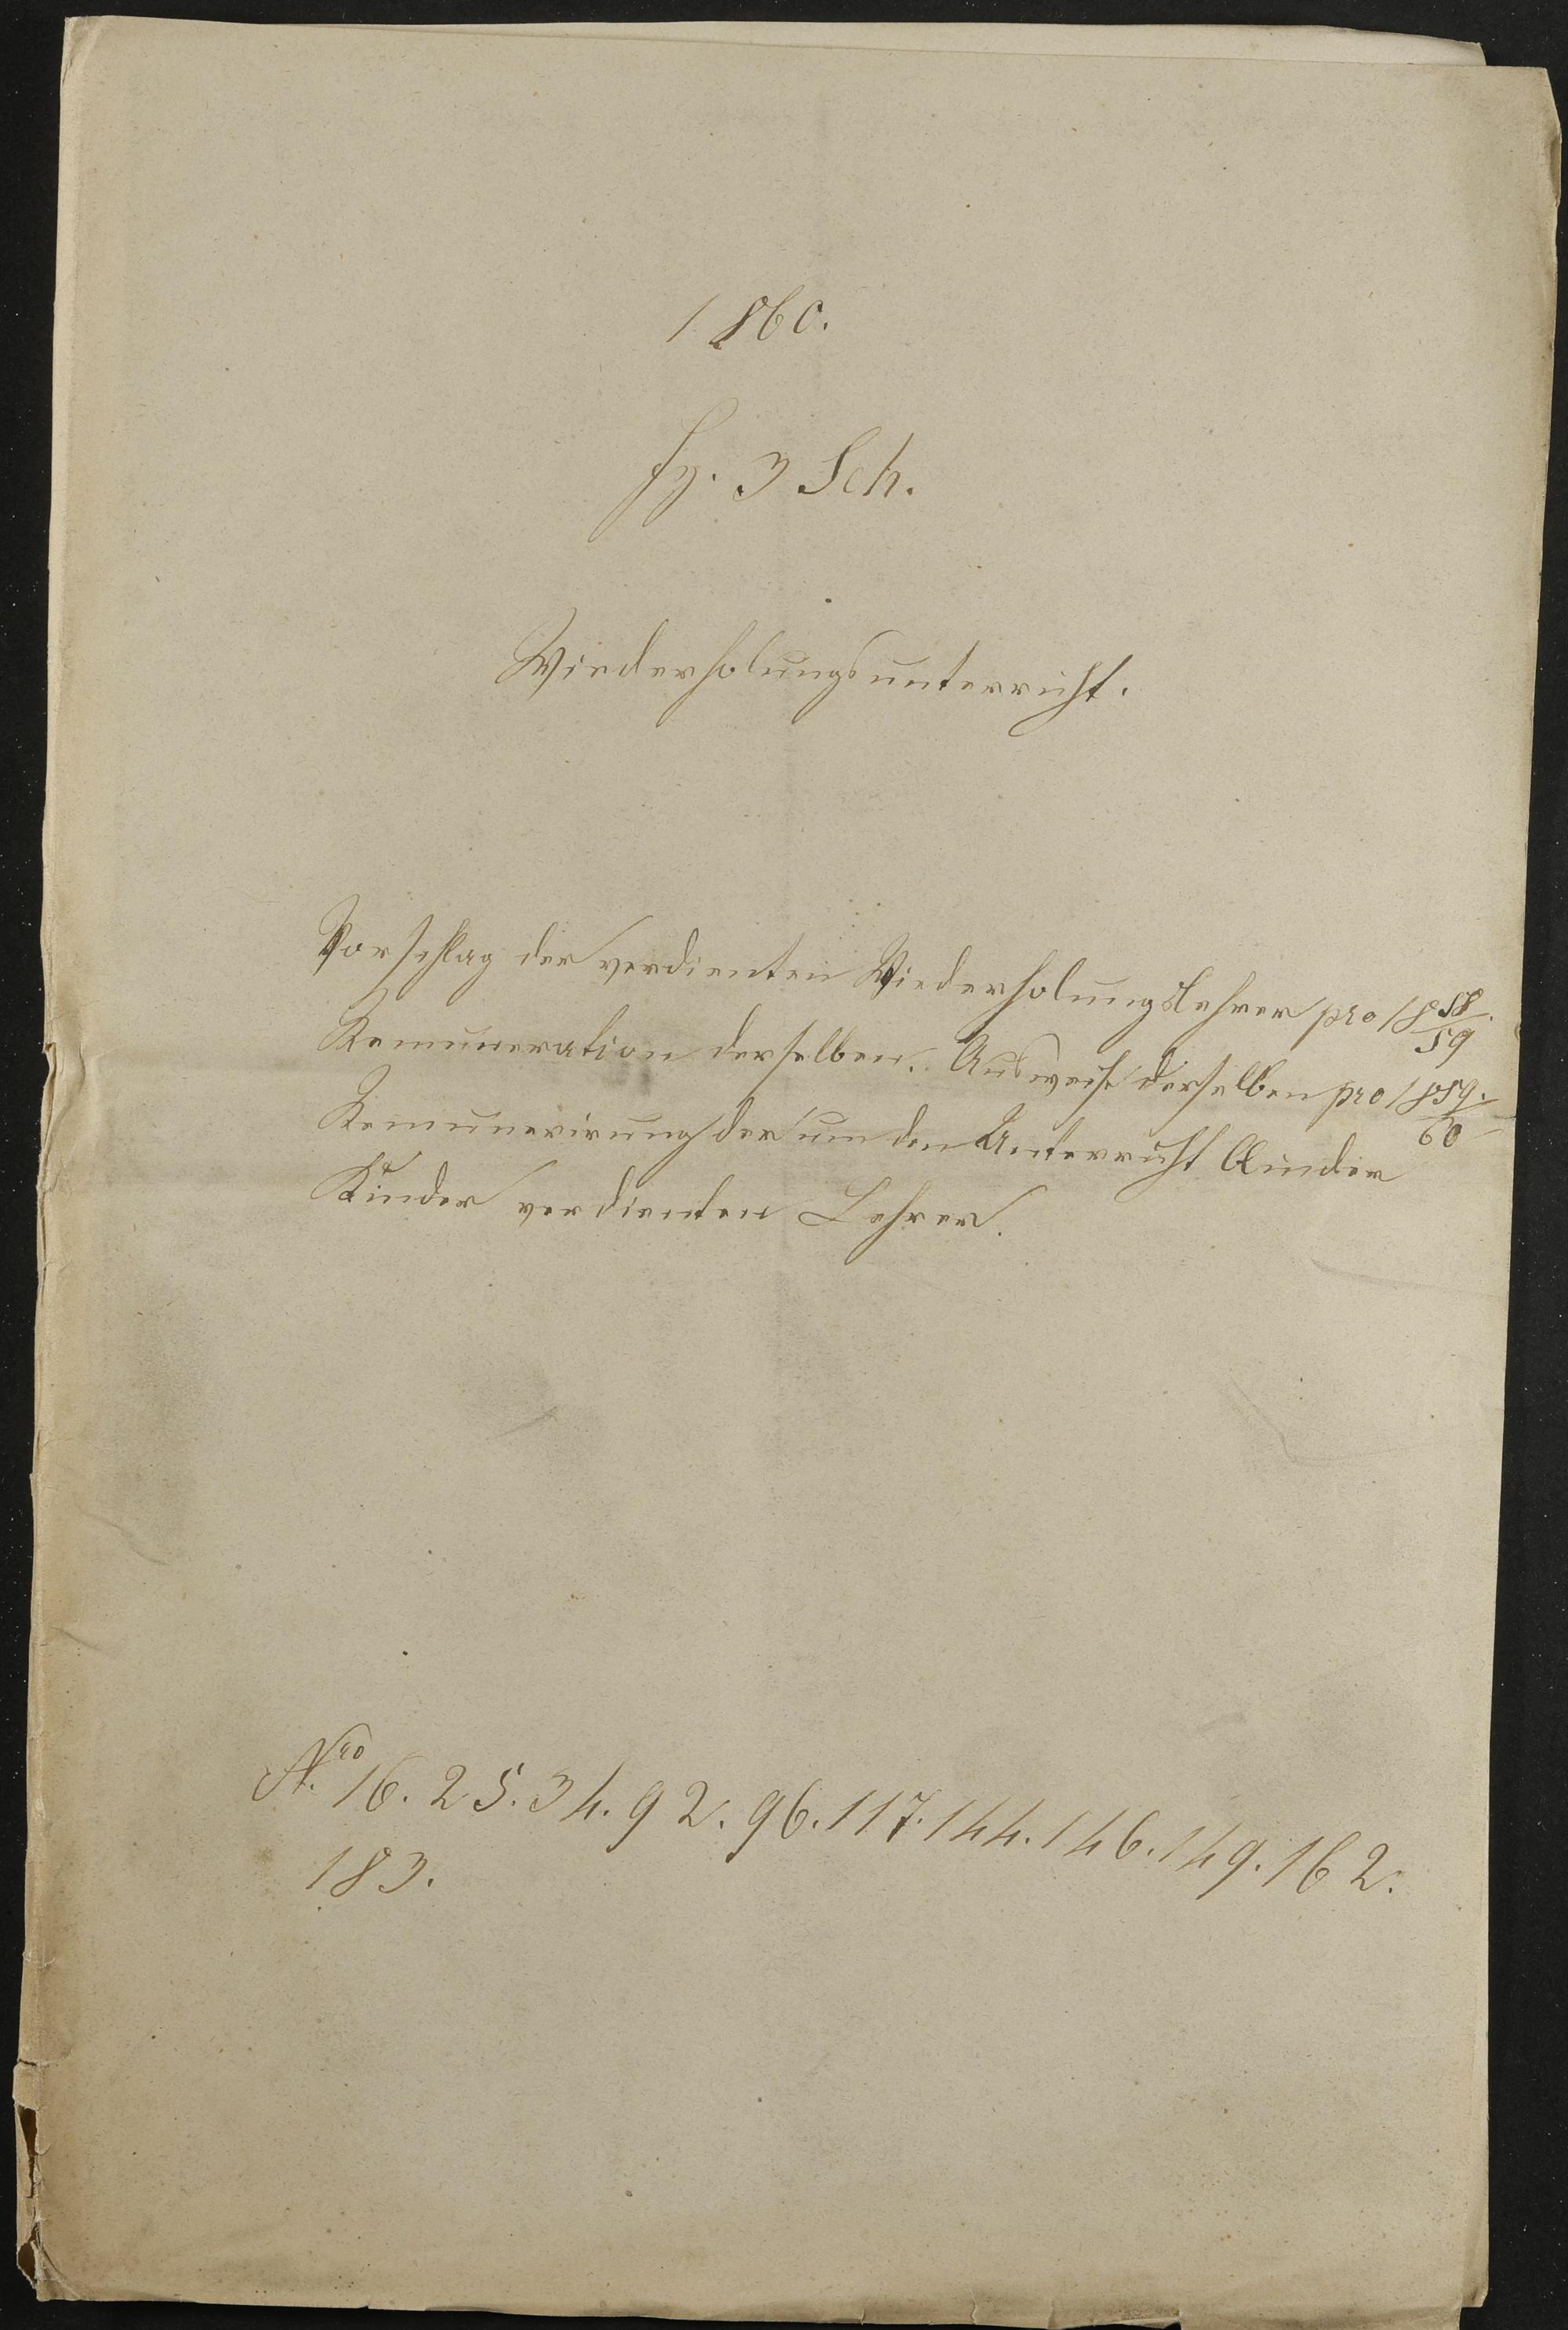 1860.
Fz. 3 Sch.
Wiederholungsunterricht.
Vorschlag der verdienten Wiederholungslehrer pro 1858/59.
Remuneration derselben. Ausweise derselben pro 1859/60.
Remunerirung der um den Unterricht blinder
Kinder verdienten Lehrer.
Nro 16. 25. 34. 92. 96. 117. 144. 146. 149. 162.
183.